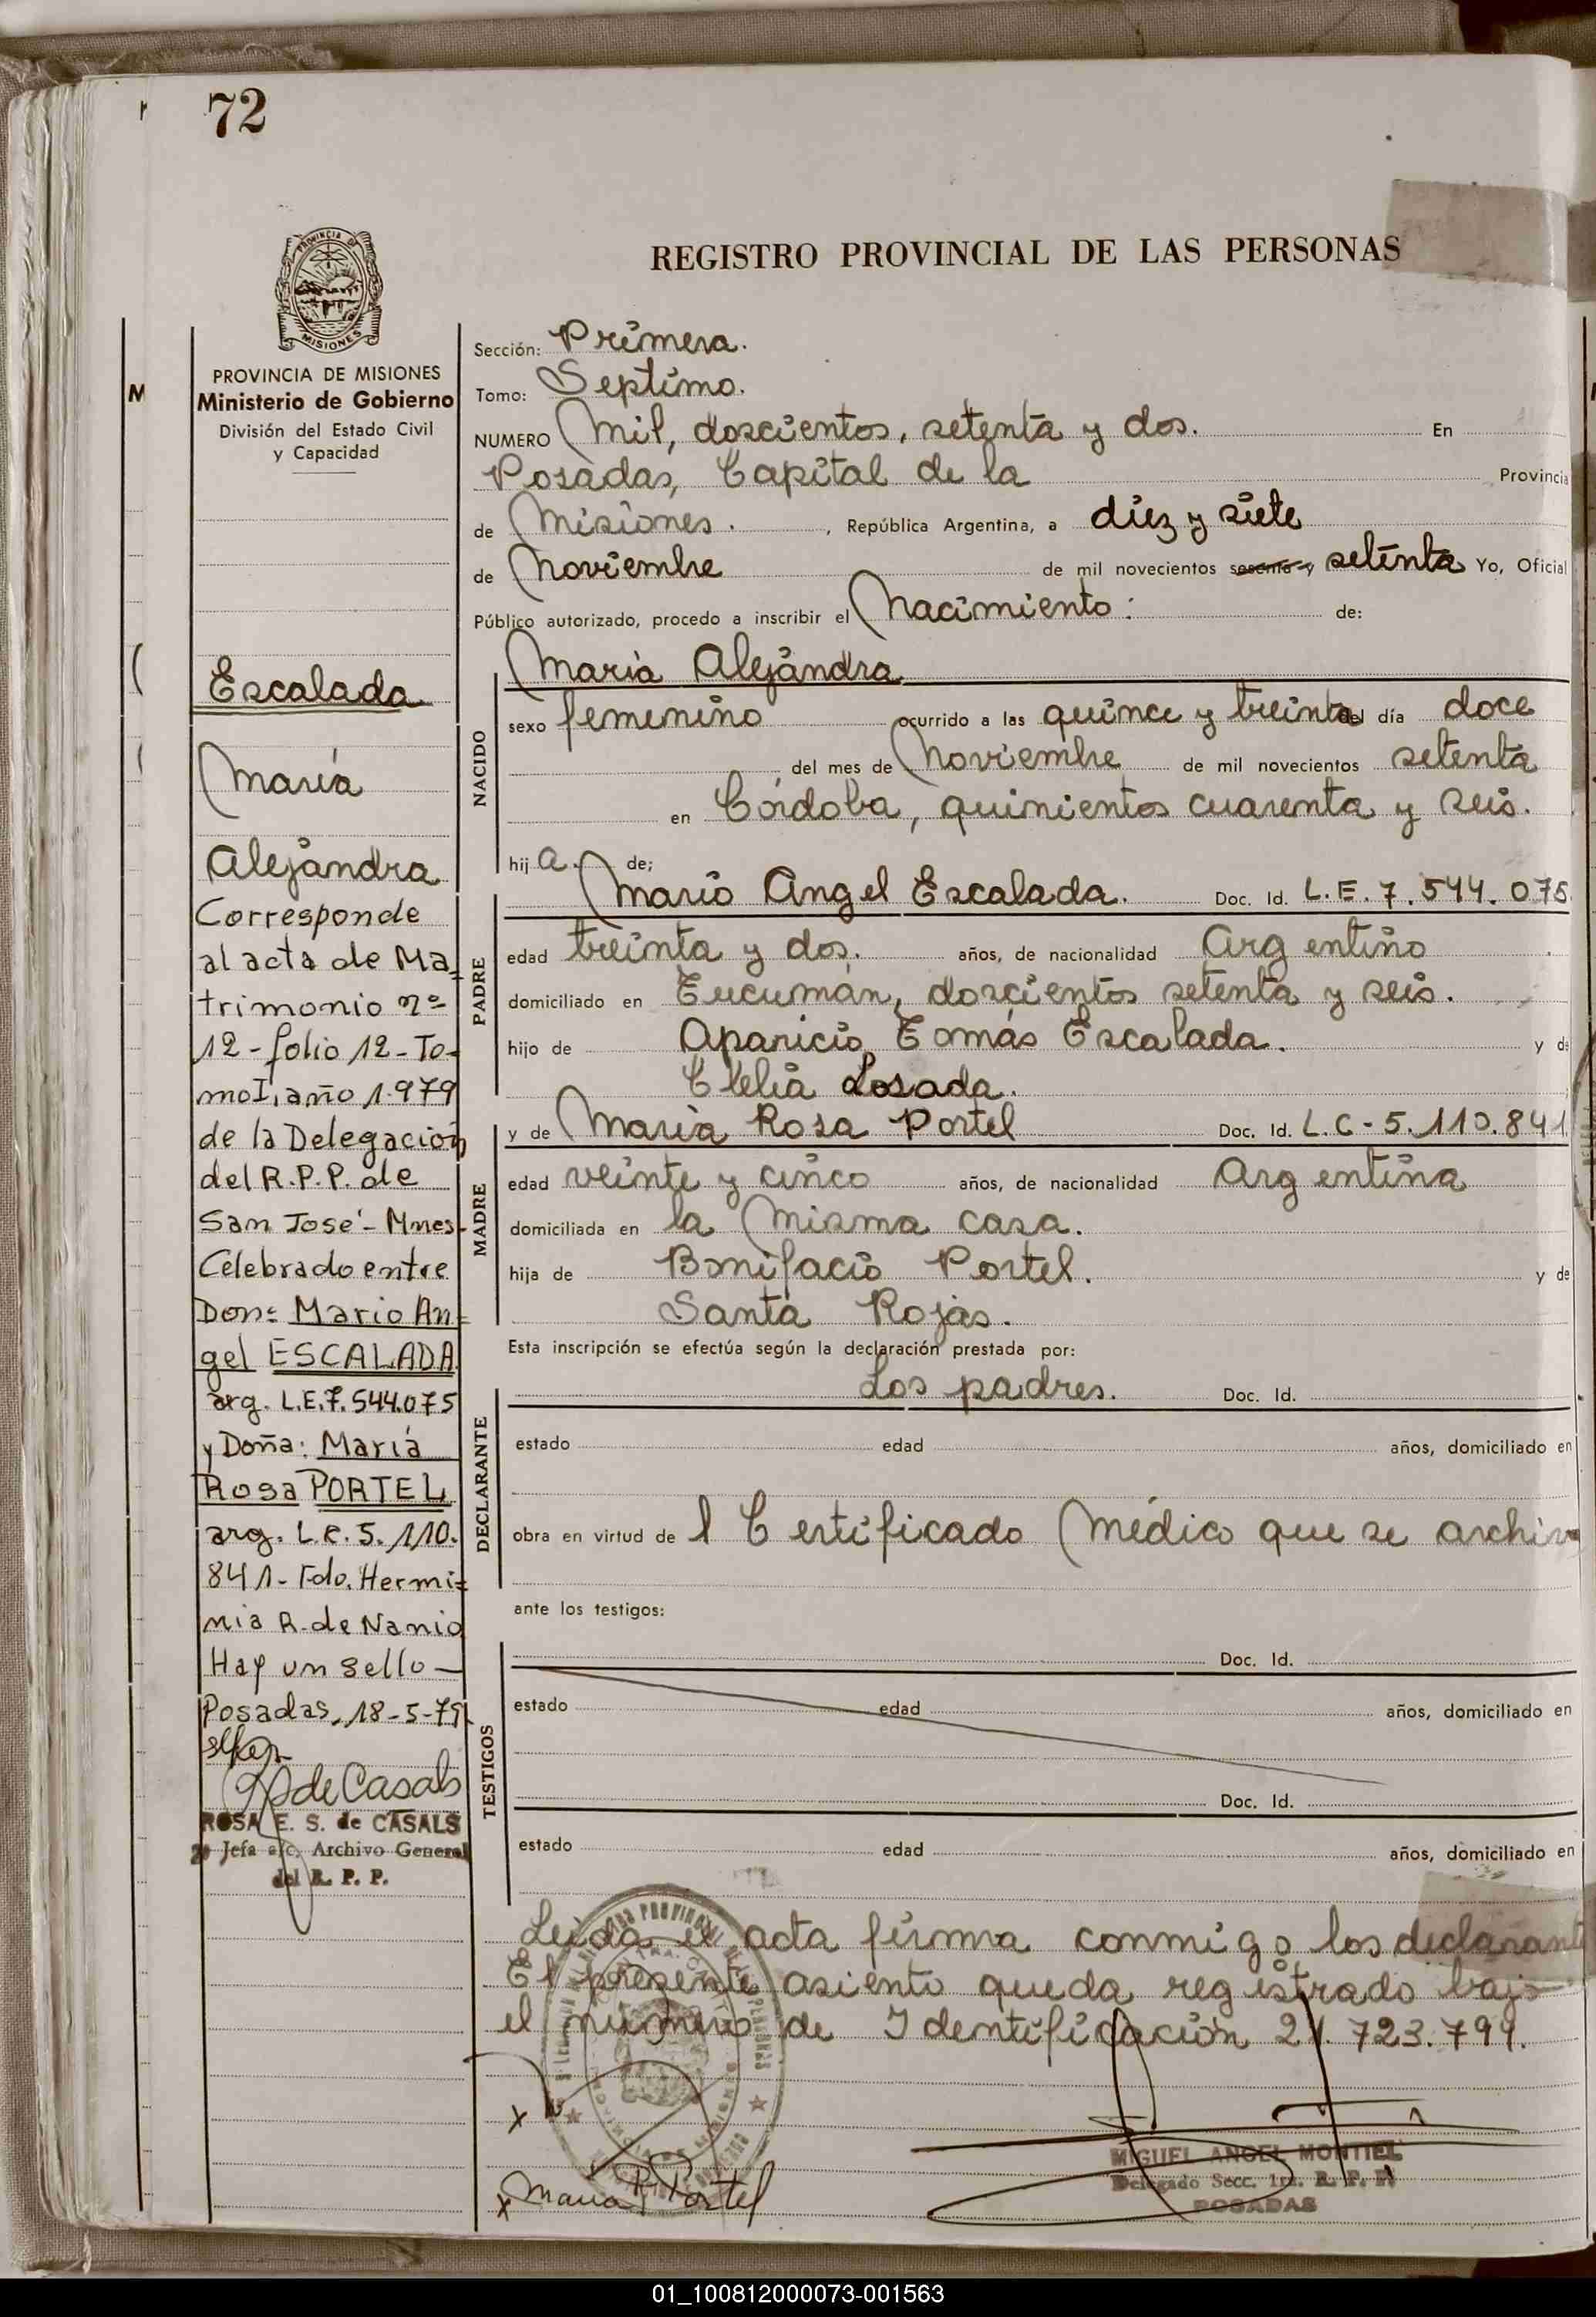 72
PROVINCIA DE MISIONES
Ministerio de Gobierno
División del Estado Civil
y Capacidad
Escalada
María
Alejandra
Corresponde
al acta de Ma-
trimonio nº
12-folio 12-To-
mo I, año 1.979
de la Delegación
del R.P.P. de
San José - Mnes-
Celebrado entre
Don: Mario An-
gel ESCALADA
arg. L.E.7.544.075
y Doña: María
Rosa PORTEL
arg. L.C. 5.110.
841- Fdo. Hermi-
nia R. de Nanio
Hay un sello -
Posadas, 18-5-79
de Casals
ROSA E. S. de CASALS
Jefa a/c. Archivo General
del R. P. P.
REGISTRO PROVINCIAL DE LAS PERSONAS
Sección: Primera.
Tomo: Septimo.
NUMERO Mil, doscientos, setenta y dos. En
Posadas, Capital de la Provincia
de Misiones. , República Argentina, a diez y siete
de Noviembre de mil novecientos sesenta y setenta Yo, Oficial
Público autorizado, procedo a inscribir el Nacimiento: de:
NACIDO
María Alejandra
sexo femenino ocurrido a las quince y treinta del día doce
del mes de Noviembre de mil novecientos setenta
en Córdoba, quinientos cuarenta y seis.
hij a. de;
PADRE
Mario Angel Escalada. Doc. Id. L.E. 7.544.075
edad treinta y dos. años, de nacionalidad Argentino
domiciliado en Tucumán, doscientos setenta y seis.
hijo de Aparicio Tomás Escalada. y de
Clelia Losada.
MADRE
y de María Rosa Portel Doc. Id. L.C-5.110.841
edad veinte y cinco años, de nacionalidad Argentina
domiciliada en la misma casa.
hija de Bonifacio Portel. y de
Santa Rojas.
Esta inscripción se efectúa según la declaración prestada por:
DECLARANTE
Los padres. Doc. Id.
estado edad años, domiciliado en
obra en virtud de l Certificado Médico que se archiva
ante los testigos:
TESTIGOS
Doc. Id.
estado edad años, domiciliado en
Doc. Id.
estado edad años, domiciliado en
Leída el acta firma conmigo los declarant
El presente asiento queda registrado bajo
el número de Identificación 21.723.799.
x
x María R Portel
MIGUEL ANGEL MONTIEL
Delegado Secc. 1ra. R. P. P.
POSADAS
01_100812000073-001563